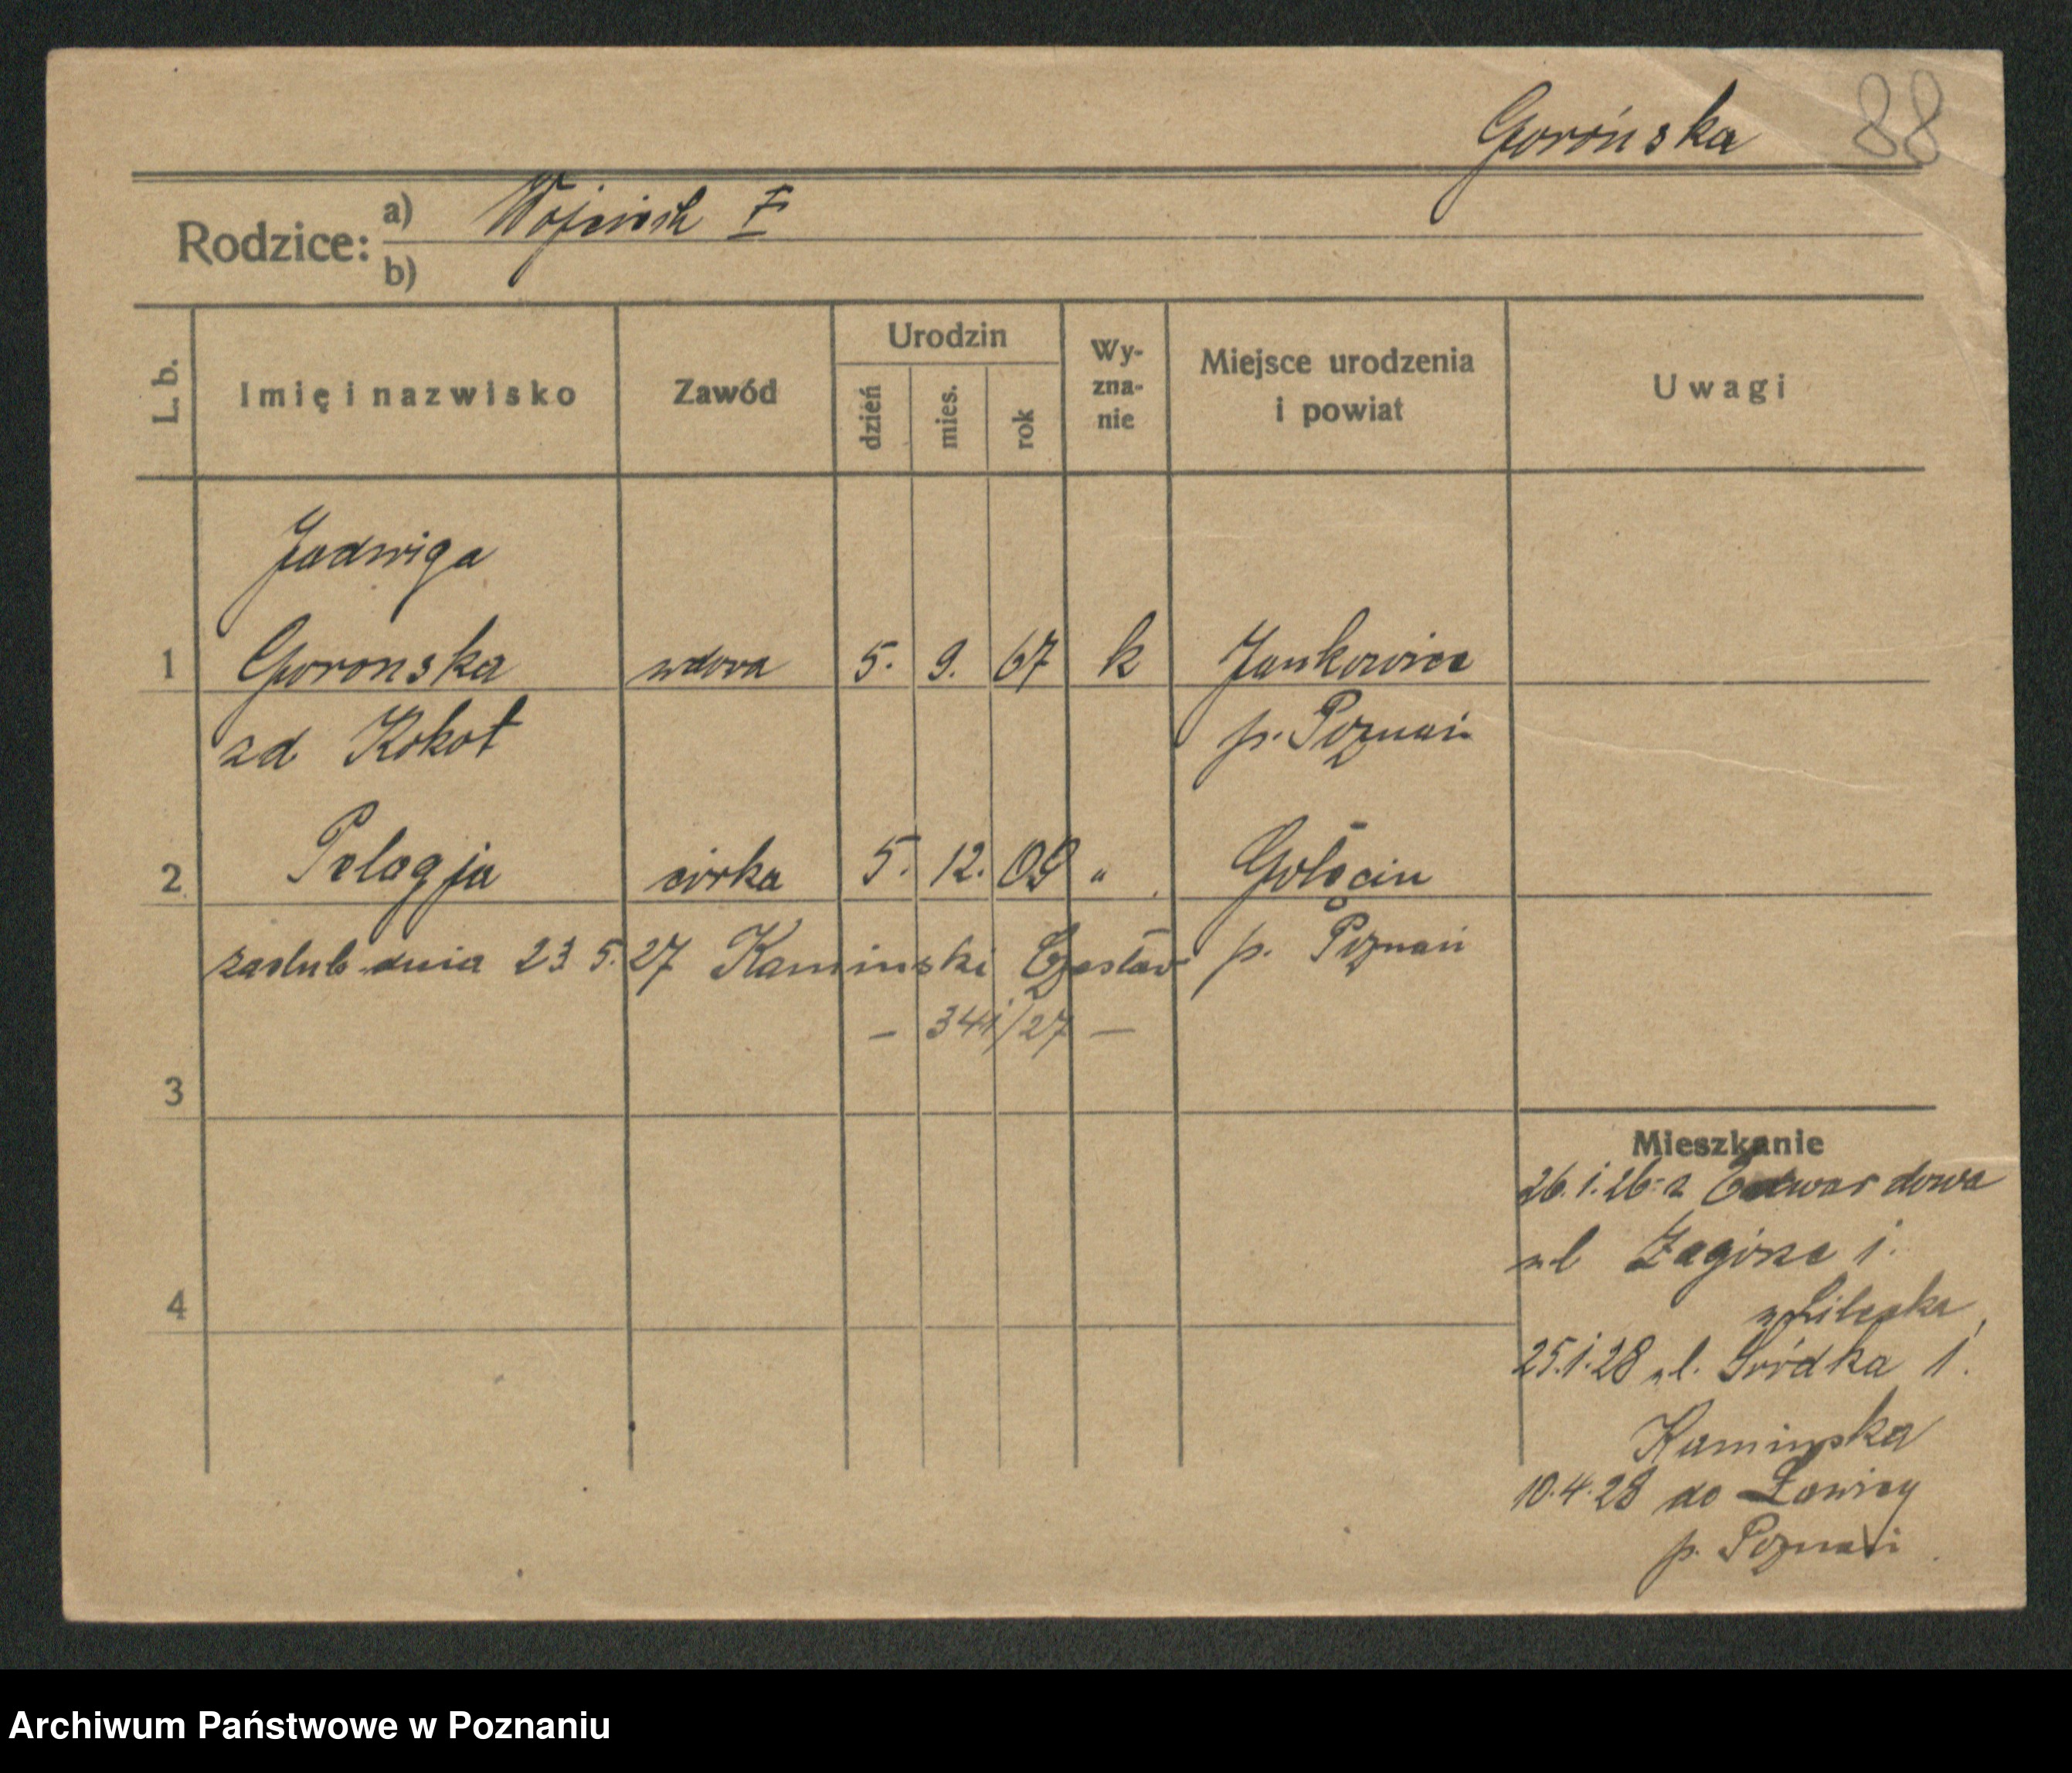 Gorońska 88
Rodzice: a) Wojciech
b)
L. b. Imię i nazwisko Zawód Urodzin dzień mies. rok Wyznanie Miejsce urodzenia i powiat Uwagi
Jadwiga
1 Goronska wdowa 5. 9. 67 k Jankowice
zd Kokot p. Poznań
2 Pelagja córka 5. 12. 09 " Gołęcin
zaślub dnia 23. 5. 27 Kaminski Czesław p. Poznań
— 341/27 —
3
Mieszkanie
26.1.26 z Edwardowa
ul Zagórze 1.
4
25.1.28 ul. Śródka 1.
Kaminska
10.4.28 do Ławicy
p. Poznań
Archiwum Państwowe w Poznaniu